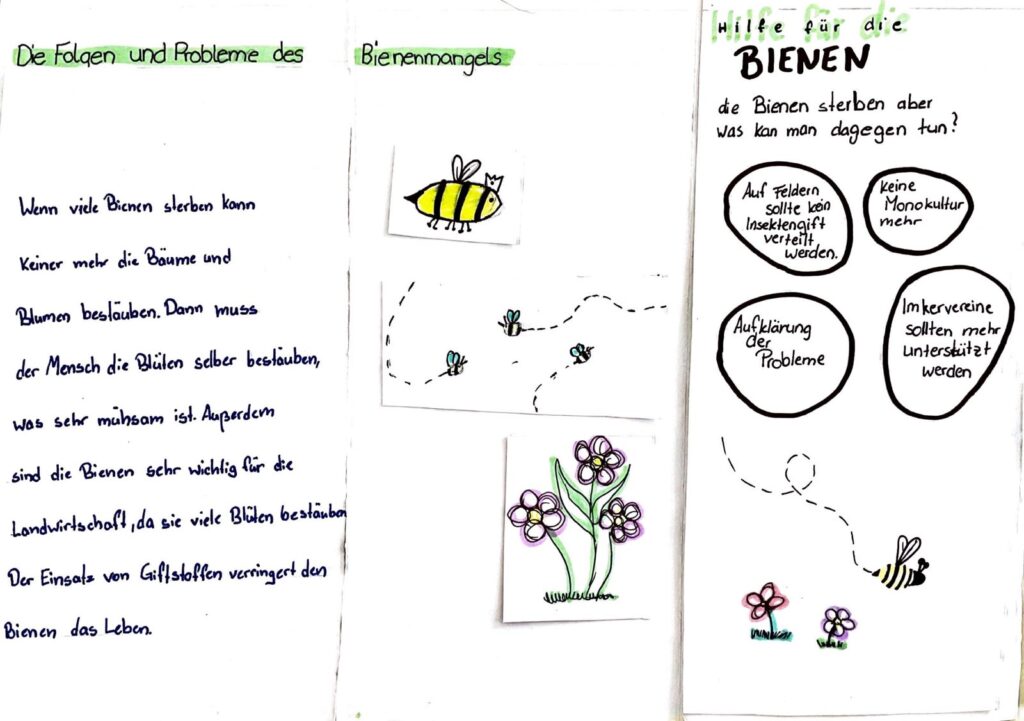 Die Folgen und Probleme des Bienenmangels
Wenn viele Bienen sterben kann
keiner mehr die Bäume und
Blumen bestäuben. Dann muss
der Mensch die Blüten selber bestäuben,
was sehr mühsam ist. Außerdem
sind die Bienen sehr wichtig für die
Landwirtschaft, da sie viele Blüten bestäuben
Der Einsatz von Giftstoffen verringert den
Bienen das Leben.
Hilfe für die
BIENEN
die Bienen sterben aber
was kan man dagegen tun?
Auf Feldern
sollte kein
Insektengift
verteilt
werden.
keine
Monokultur
mehr
Aufklärung
der
Probleme
Imkervereine
sollten mehr
unterstützt
werden